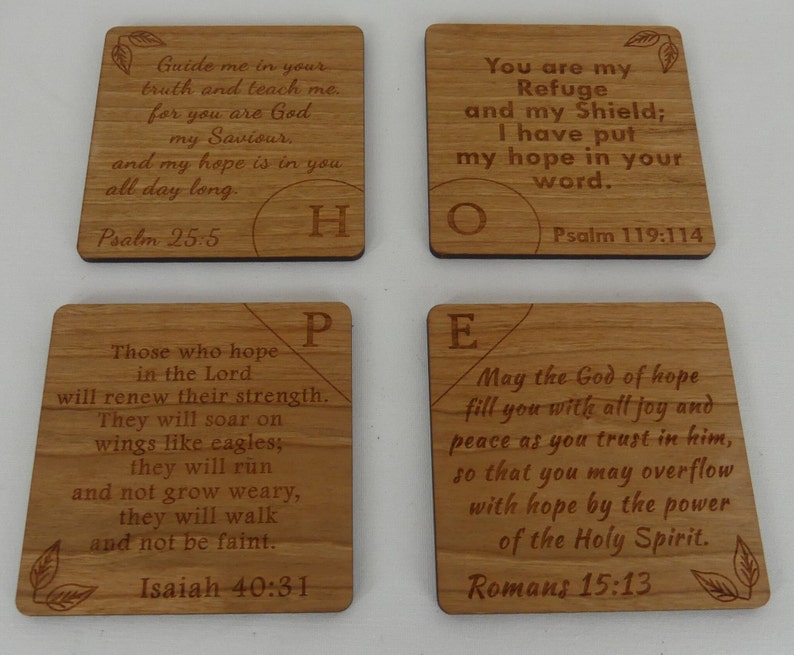 Guide me in your
truth and teach me.
for you are God
my Saviour,
and my hope is in you
all day long.
Psalm 25:5
H
You are my
Refuge
and my Shield;
I have put
my hope in your
word.
O
Psalm 119:114
P
Those who hope
in the Lord
will renew their strength.
They will soar on
wings like eagles;
they will run
and not grow weary,
they will walk
and not be faint.
Isaiah 40:31
E
May the God of hope
fill you with all joy and
peace as you trust in him,
so that you may overflow
with hope by the power
of the Holy Spirit.
Romans 15:13